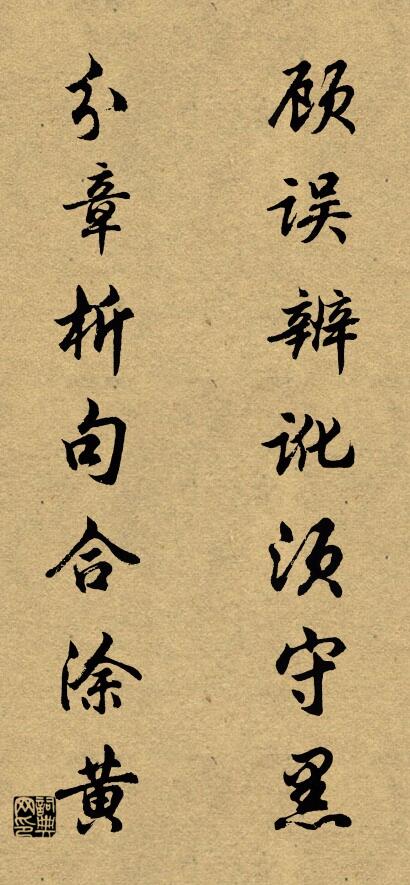 顾误辨讹须守黑
分章析句合涂黄
词典网印